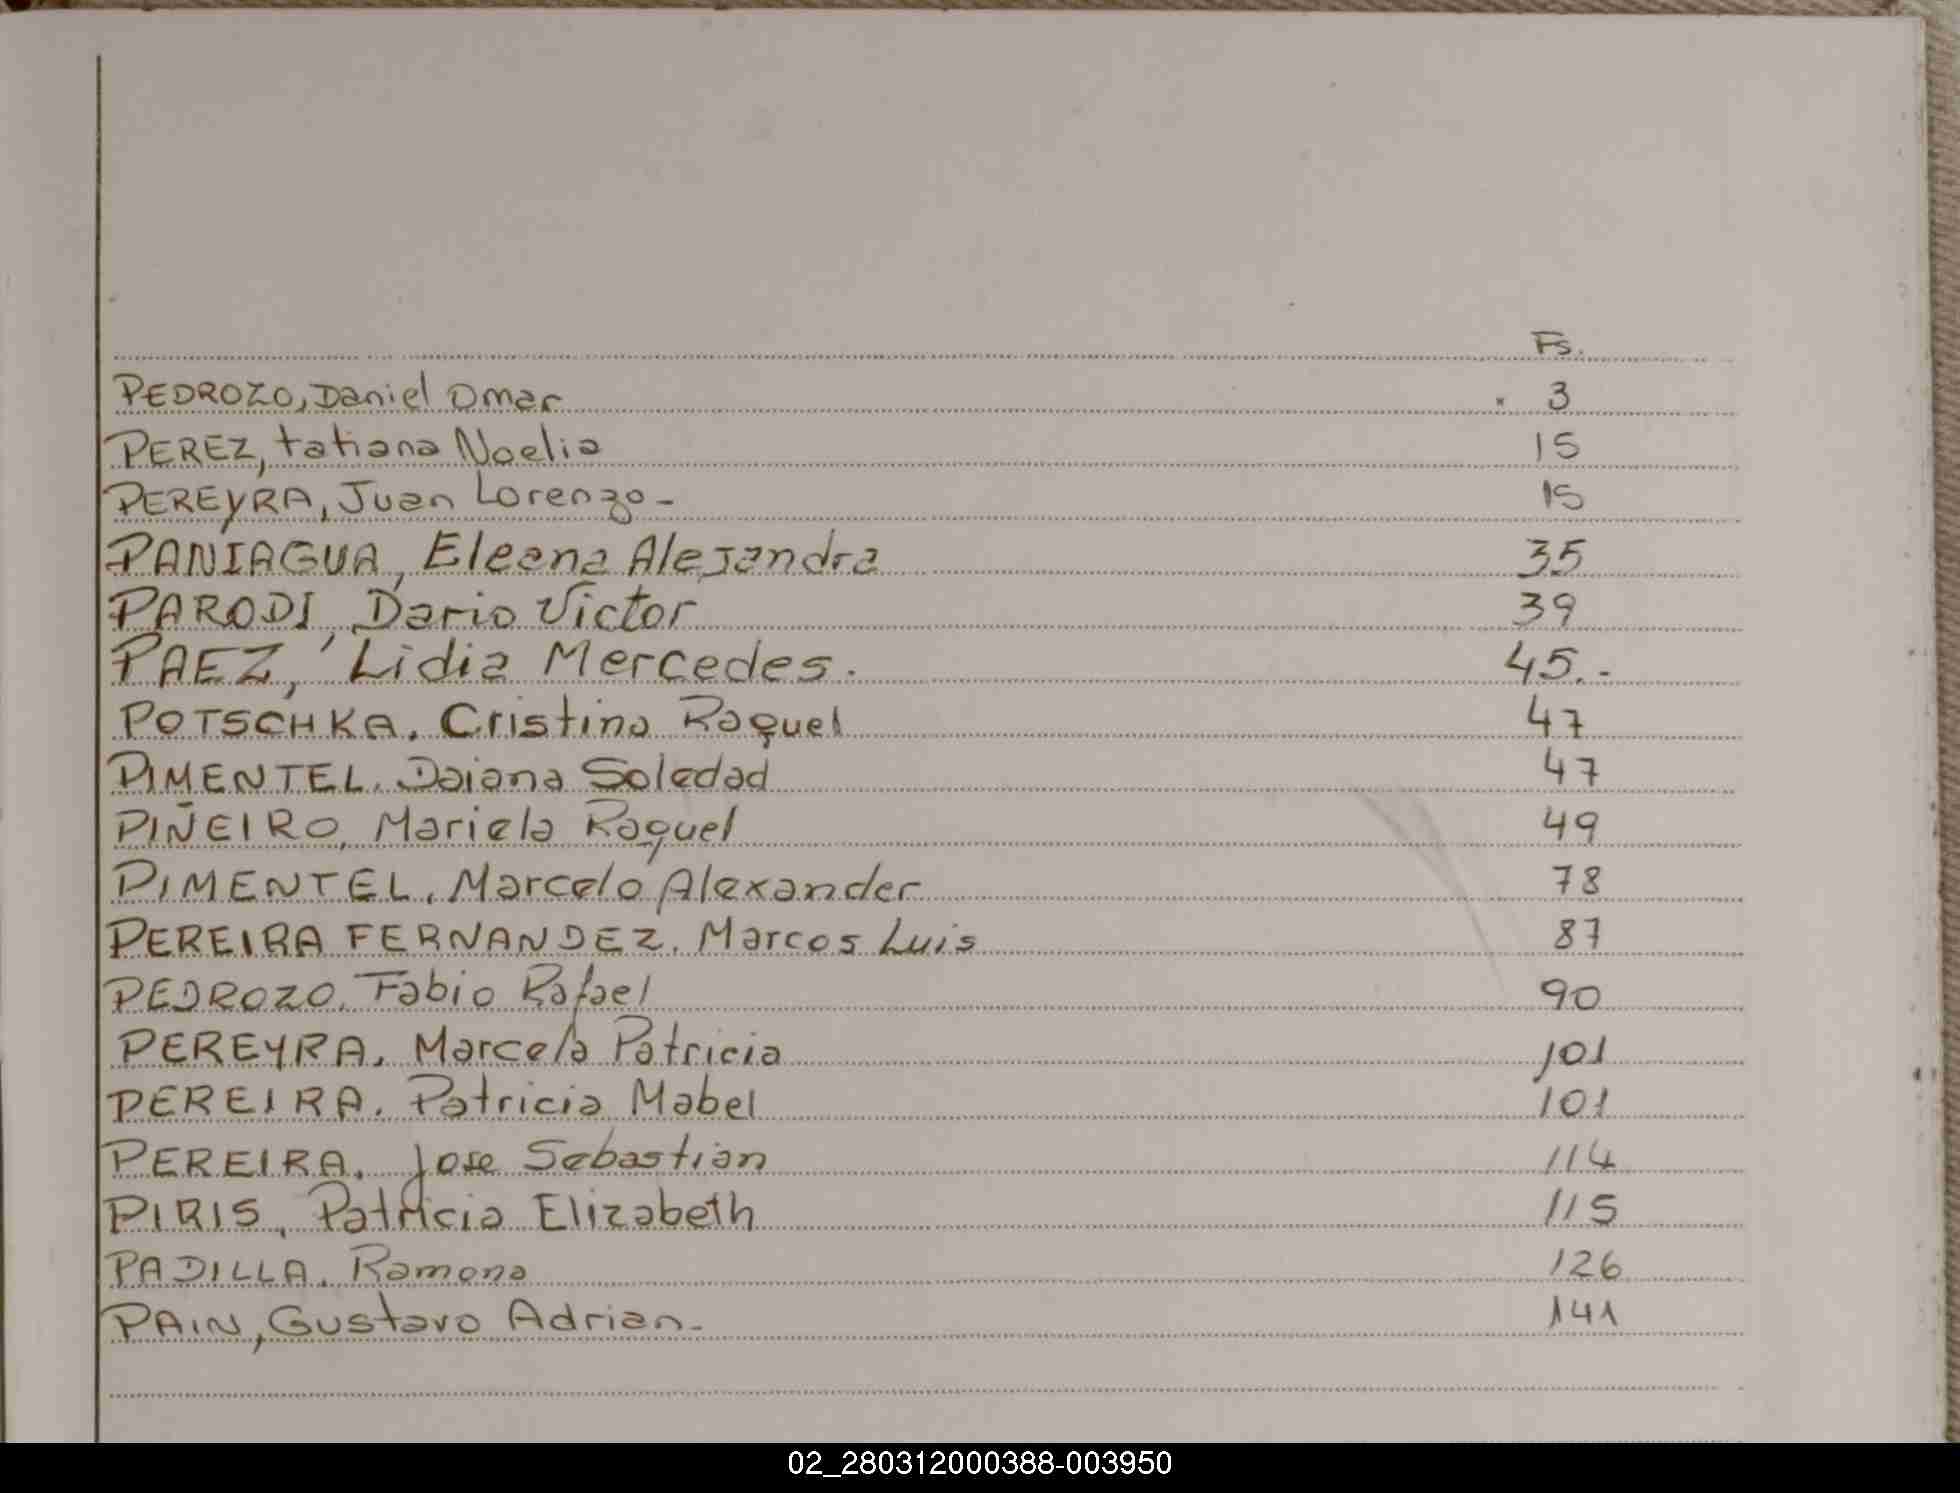 Fs.
PEDROZO, Daniel Omar 3
PEREZ, tatiana Noelia 15
PEREYRA, Juan Lorenzo- 15
PANIAGUA, Eleana Alejandra 35
PARODI, Dario Victor 39
PAEZ, Lidia Mercedes. 45.-
POTSCHKA. Cristina Raquel 47
PIMENTEL. Daiana Soledad 47
PIÑEIRO, Mariela Raquel 49
PIMENTEL, Marcelo Alexander 78
PEREIRA FERNANDEZ. Marcos Luis 87
PEDROZO. Fabio Rafael 90
PEREYRA. Marcela Patricia 101
PEREIRA. Patricia Mabel 101
PEREIRA. Jose Sebastian 114
PIRIS, Patricia Elizabeth 115
PADILLA. Ramona 126
PAIN, Gustavo Adrian- 141
02_280312000388-003950